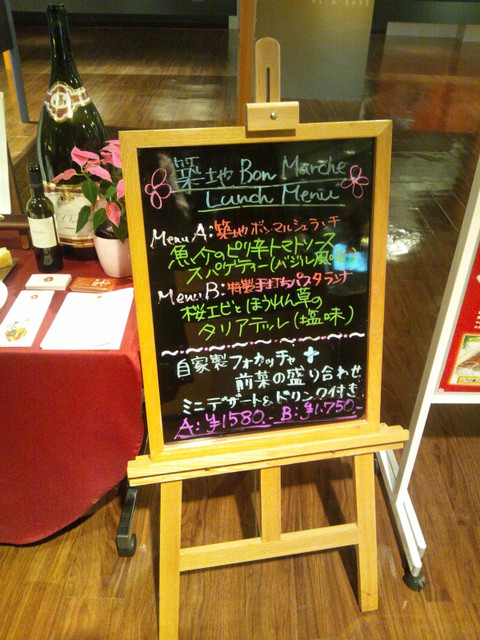 築地 Bon Marche
Lunch Menu
Menu A: 築地ボン・マルシェランチ
魚介のピリ辛トマトソース
スパゲティー(バジル風味)
Menu B: 特製手打ちパスタランチ
桜エビとほうれん草の
タリアテッレ(塩味)
自家製フォカッチャ +
前菜の盛り合わせ
ミニデザート&ドリンク付き
A: ¥1580.- B: ¥1.750-